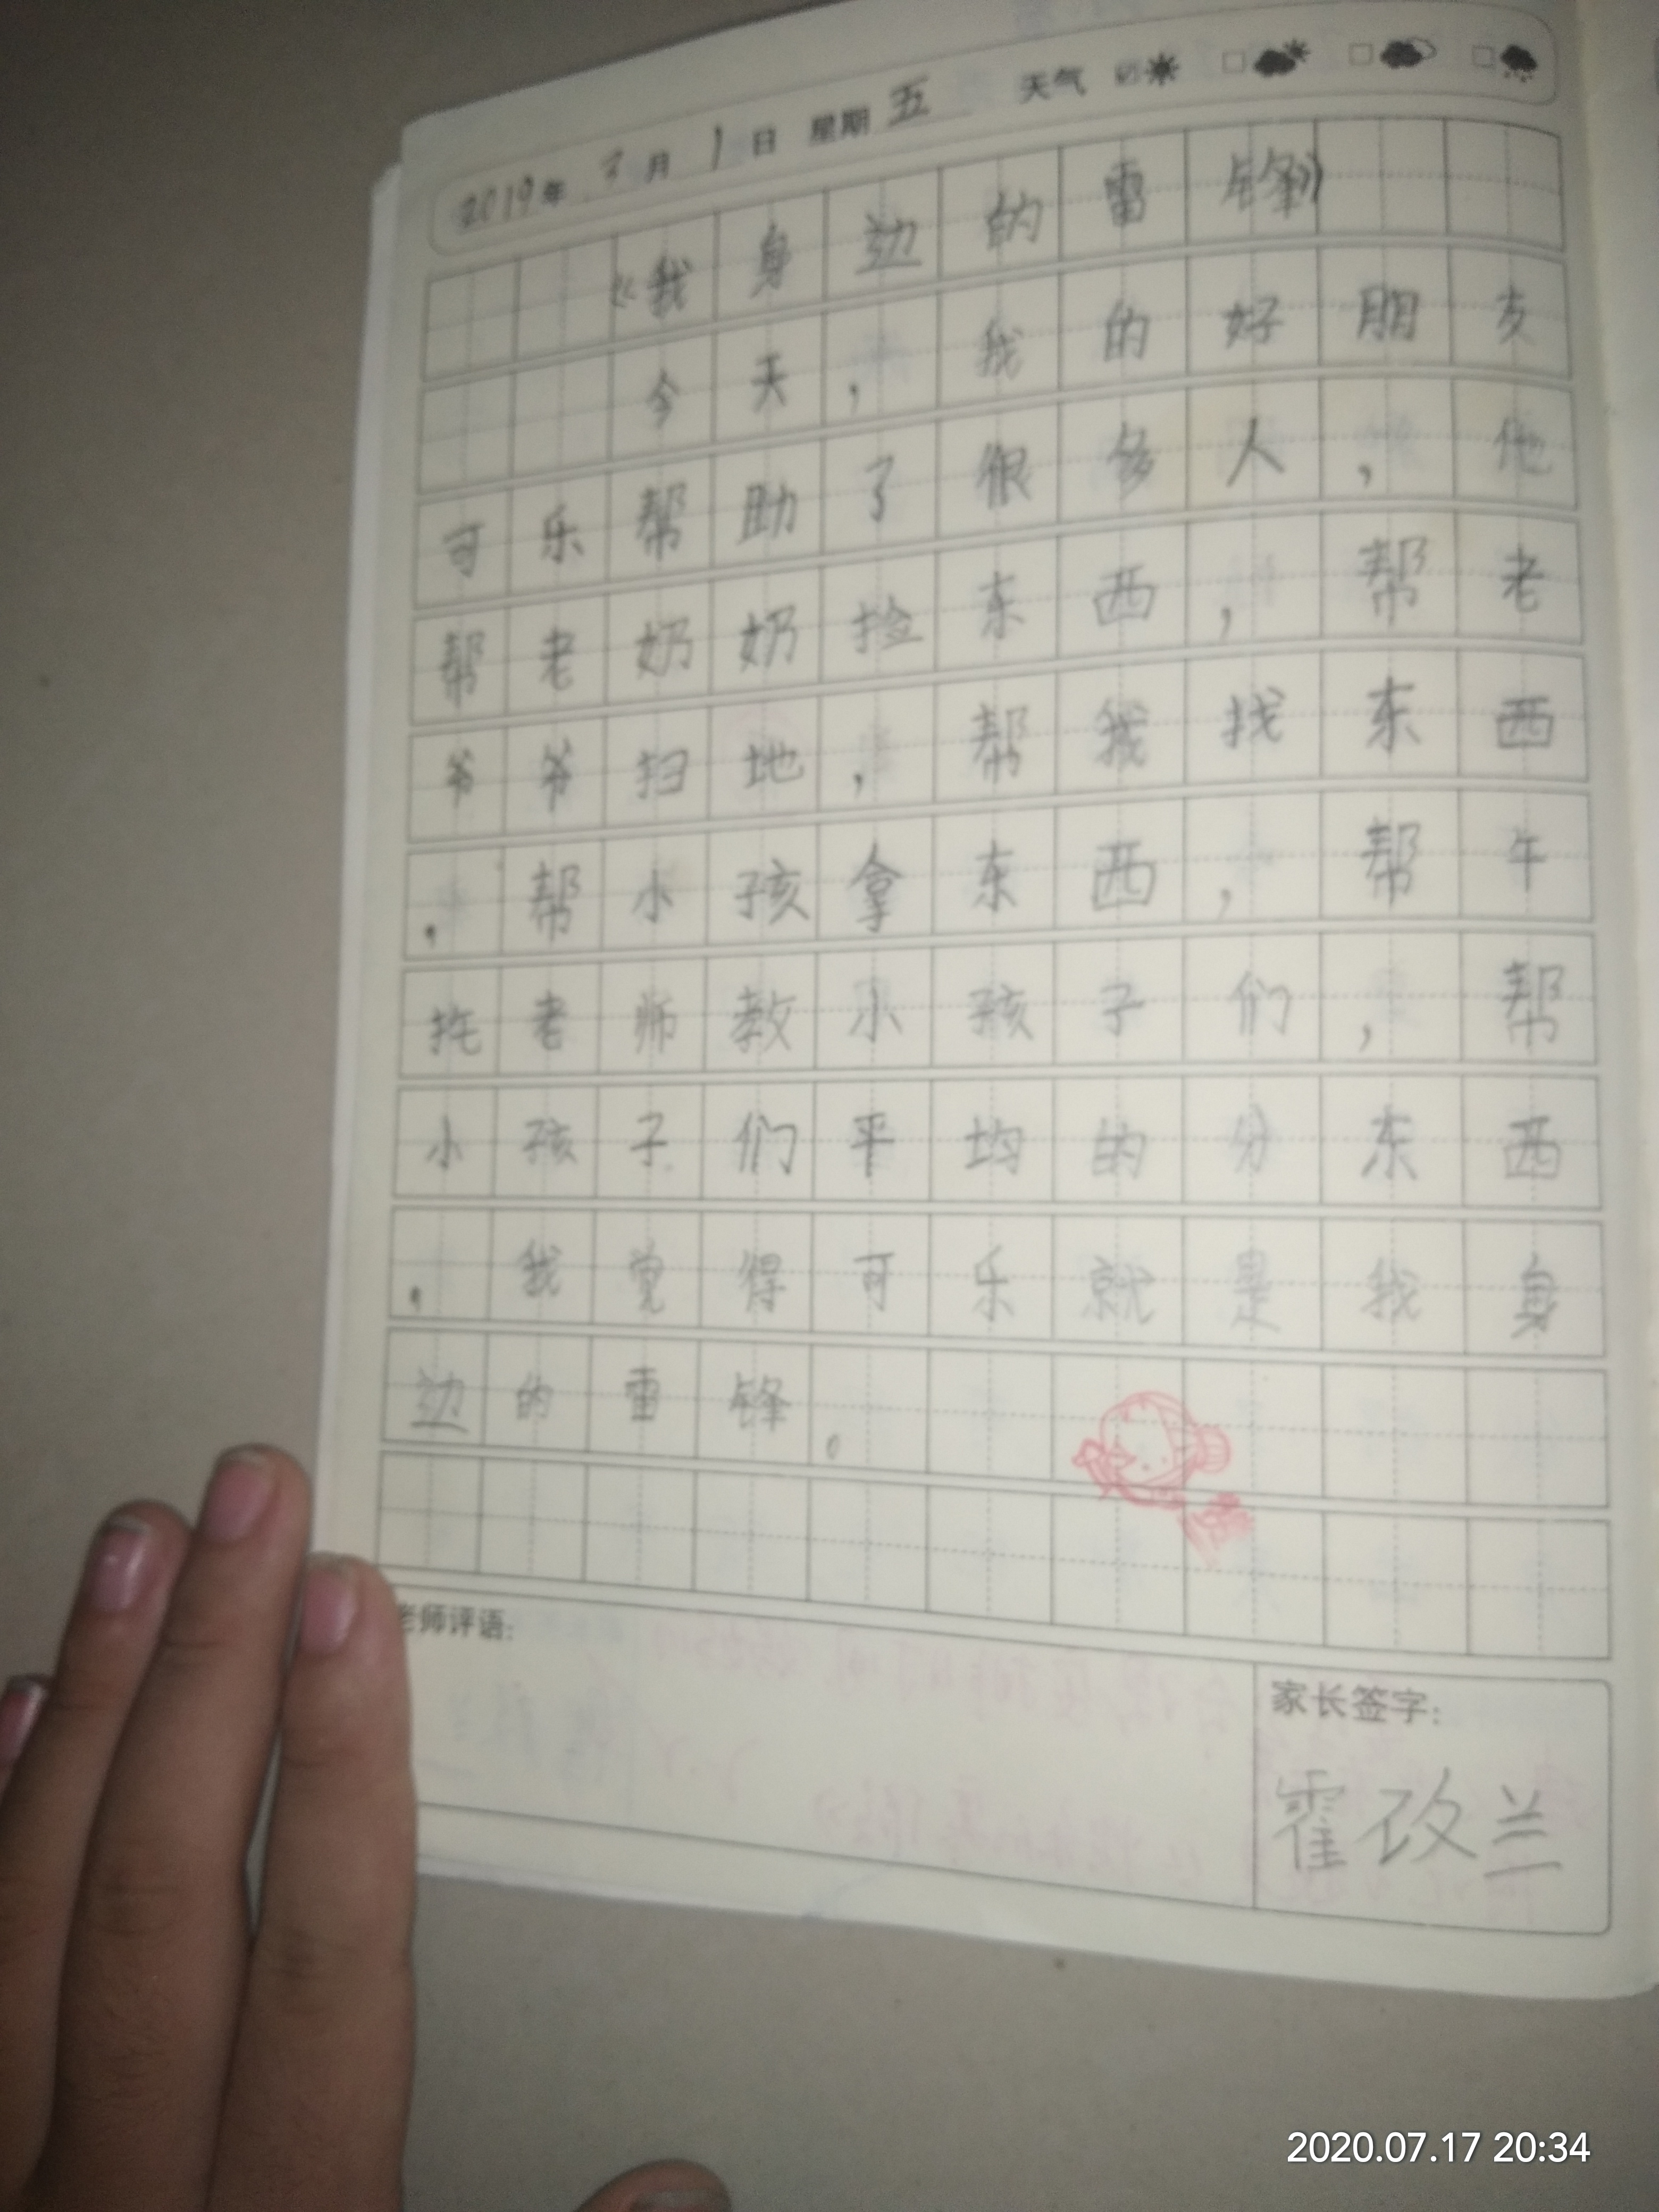 2019年 3月 1日 星期五 天气
《我身边的雷锋》
今天，我的好朋友
可乐帮助了很多人，他
帮老奶奶捡东西，帮老
爷爷扫地，帮我找东西
，帮小孩拿东西，帮午
托老师教小孩子们，帮
小孩子们平均的分东西
，我觉得可乐就是我身
边的雷锋。
老师评语：
家长签字：
霍改兰
2020.07.17 20:34